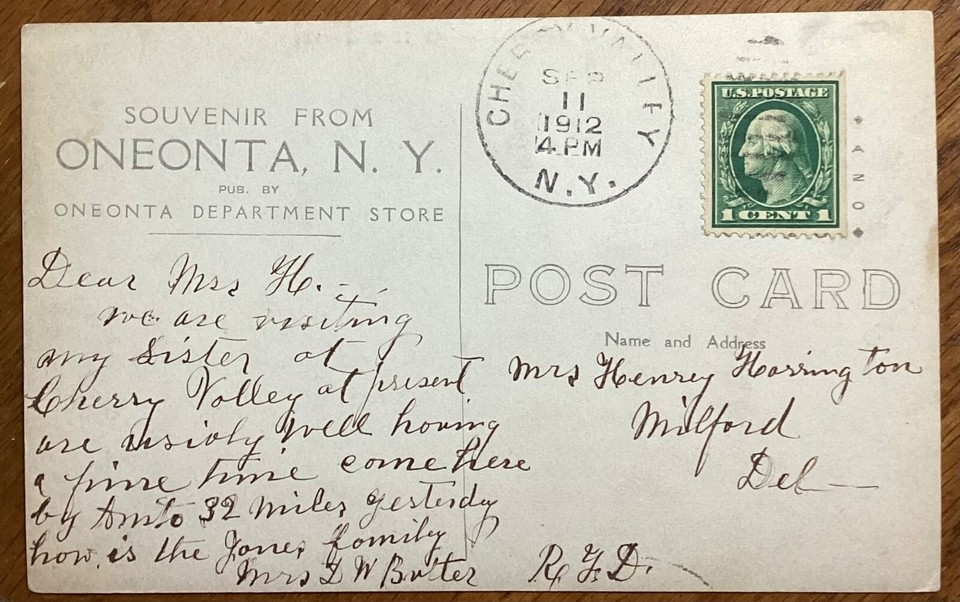 SOUVENIR FROM
ONEONTA, N. Y.
PUB. BY
ONEONTA DEPARTMENT STORE
CHERRY VALLEY
SEP
11
1912
4 PM
N.Y.
U.S. POSTAGE
1 CENT 1
AZO
POST CARD
Name and Address
Dear Mrs H. -
we are visiting
my Sister at
Cherry Valley at present
are usialy well having
a fine time come here
by Auto 32 miles yesterday
how is the Jones family
Mrs D W Butter
Mrs Henrey Harrington
Milford
Del
R.F.D.